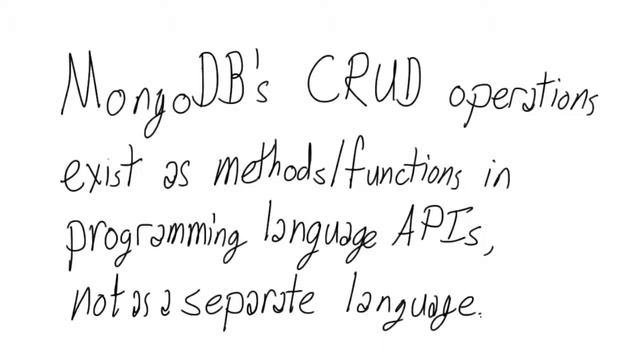 MongoDB's CRUD operations
exist as methods/functions in
programming language APIs,
not as a separate language.